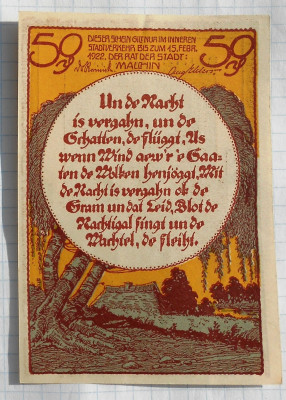 50 DIESER SCHEIN GILT NUR IM INNEREN 50
STADTVERKEHR BIS ZUM 15. FEBR.
1922. DER RAT DER STADT:
MALCHIN
Un de Nacht
is vergahn, un de
Schatten, de flüggt, As
wenn Wind aew'r'e Saa-
ten de Wolken henjöggt, Mit
de Nacht is vergahn ok de
Gram un dat Leid, Blot de
Nachtigal singt un de
Wachtel, de fleiht.